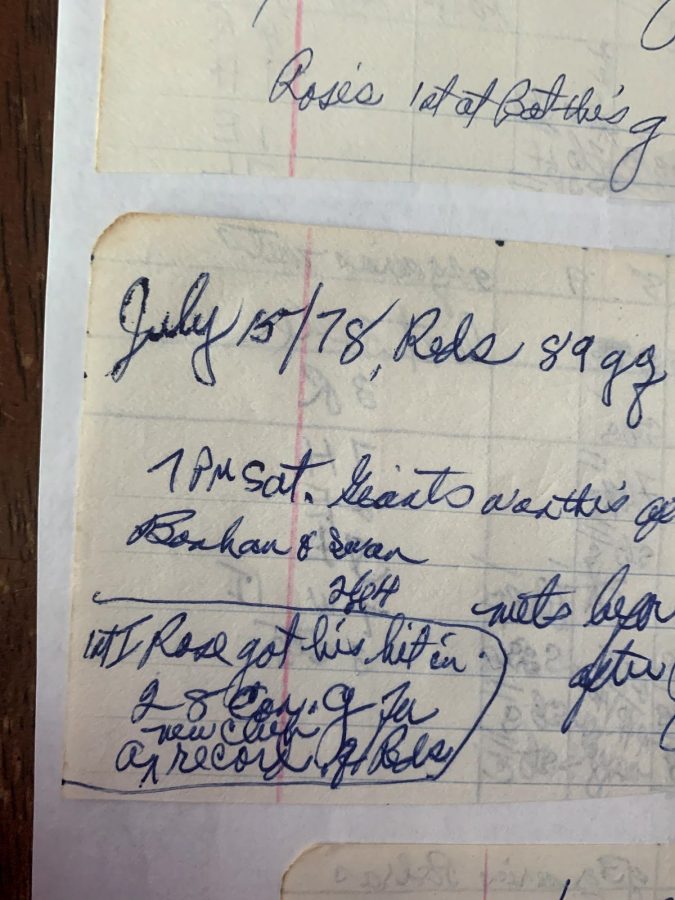 Rose's 1st at Bat this g
July 15/78, Reds 89 gg
7 PM Sat. Giants won this
Bonham & Swan
mets
1st I Rose got his hit in
28 Con. g for
new club
a record of Reds
after